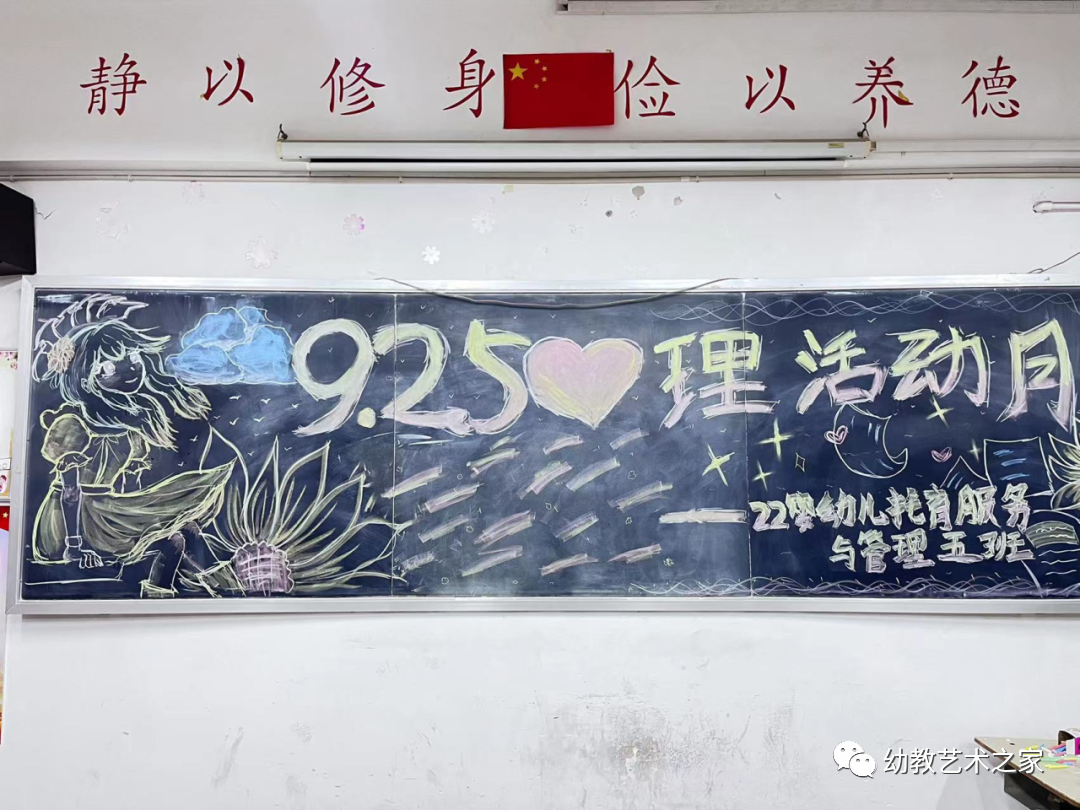 静以修身俭以养德
9.25理活动月
22婴幼儿托育服务
与管理五班
幼教艺术之家